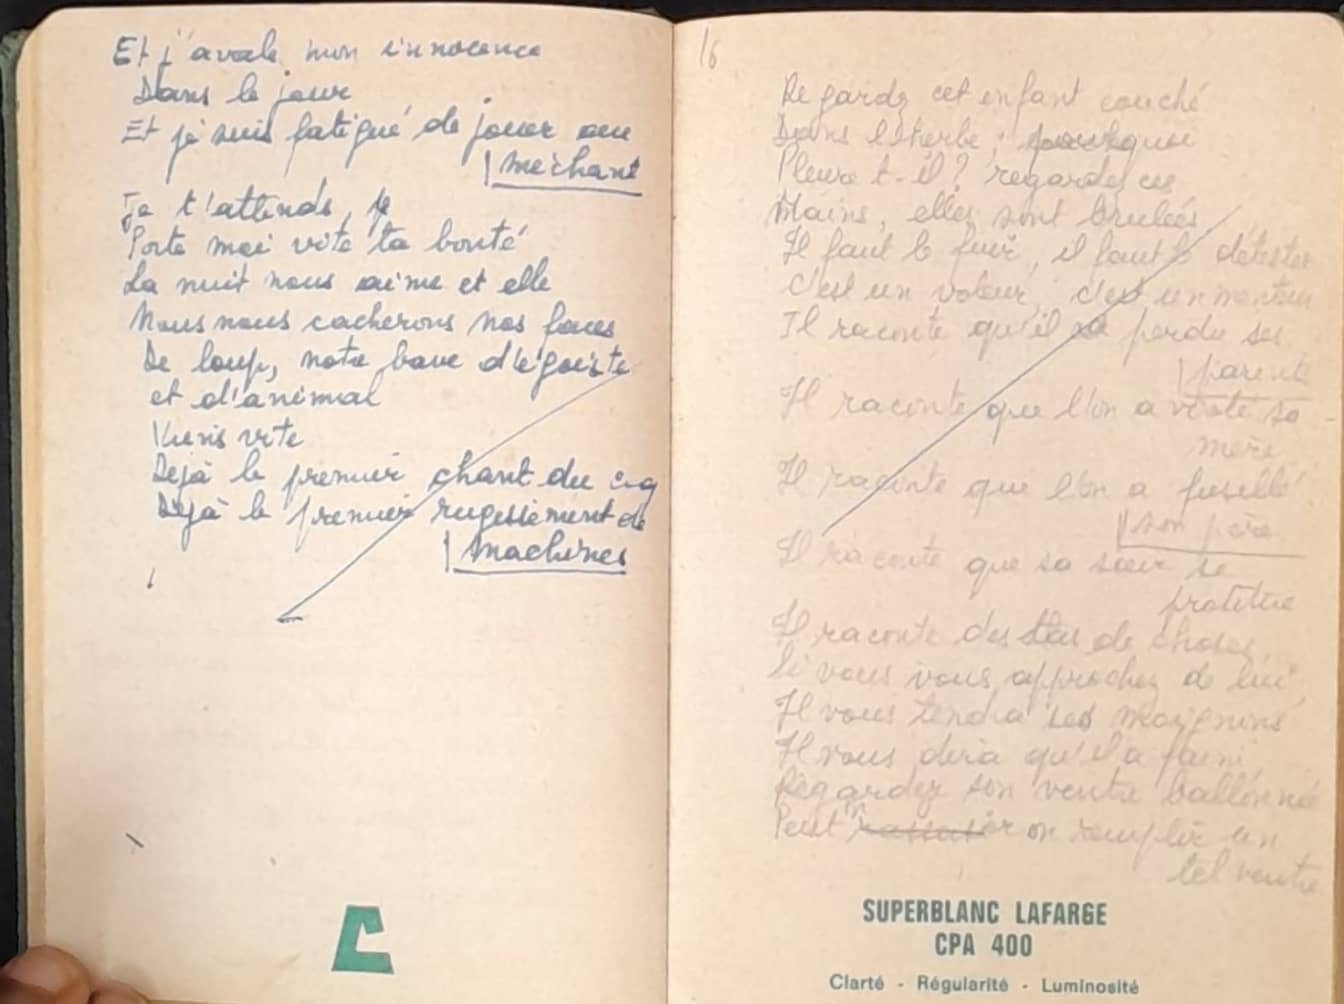 Et j'avale mon innocence
Dans le jour
Et je suis fatigué de jouer au
méchant
Je t'attends,
Porte moi vite ta bonté
La nuit nous aime et elle
Nous nous cacherons nos faces
De loup, notre bave d'égoiste
et d'animal
Viens vite
Dejà le premier chant du coq
Dejà le premier rugissement de
machines
16
Regardez cet enfant couché
Dans l'herbe, pourquoi
Pleure t-il? regardez ces
Mains, elles sont brulées
Il faut le fuir, il faut le détester
C'est un voleur, c'est un menteur
Il raconte qu'il a perdu ses
parents
Il raconte que l'on a violé sa
mère
Il raconte que l'on a fusillé
son père
Il raconte que sa sœur se
prostitue
Il raconte des tas de choses
Si vous vous approchez de lui
Il vous tendra ses moignons
Il vous dira qu'il a faim
Regardez son ventre ballonné
Peut on remplir un
tel ventre
SUPERBLANC LAFARGE
CPA 400
Clarté - Régularité - Luminosité